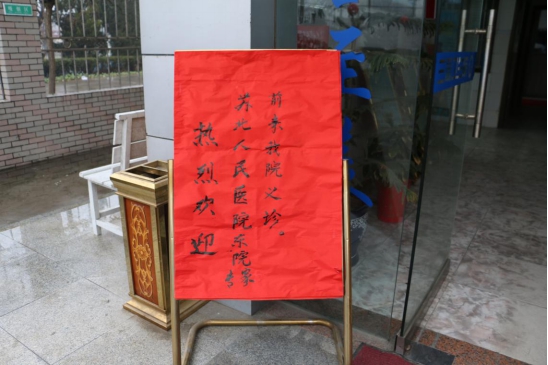 热烈欢迎
苏北人民医院东院专家
前来我院义诊。